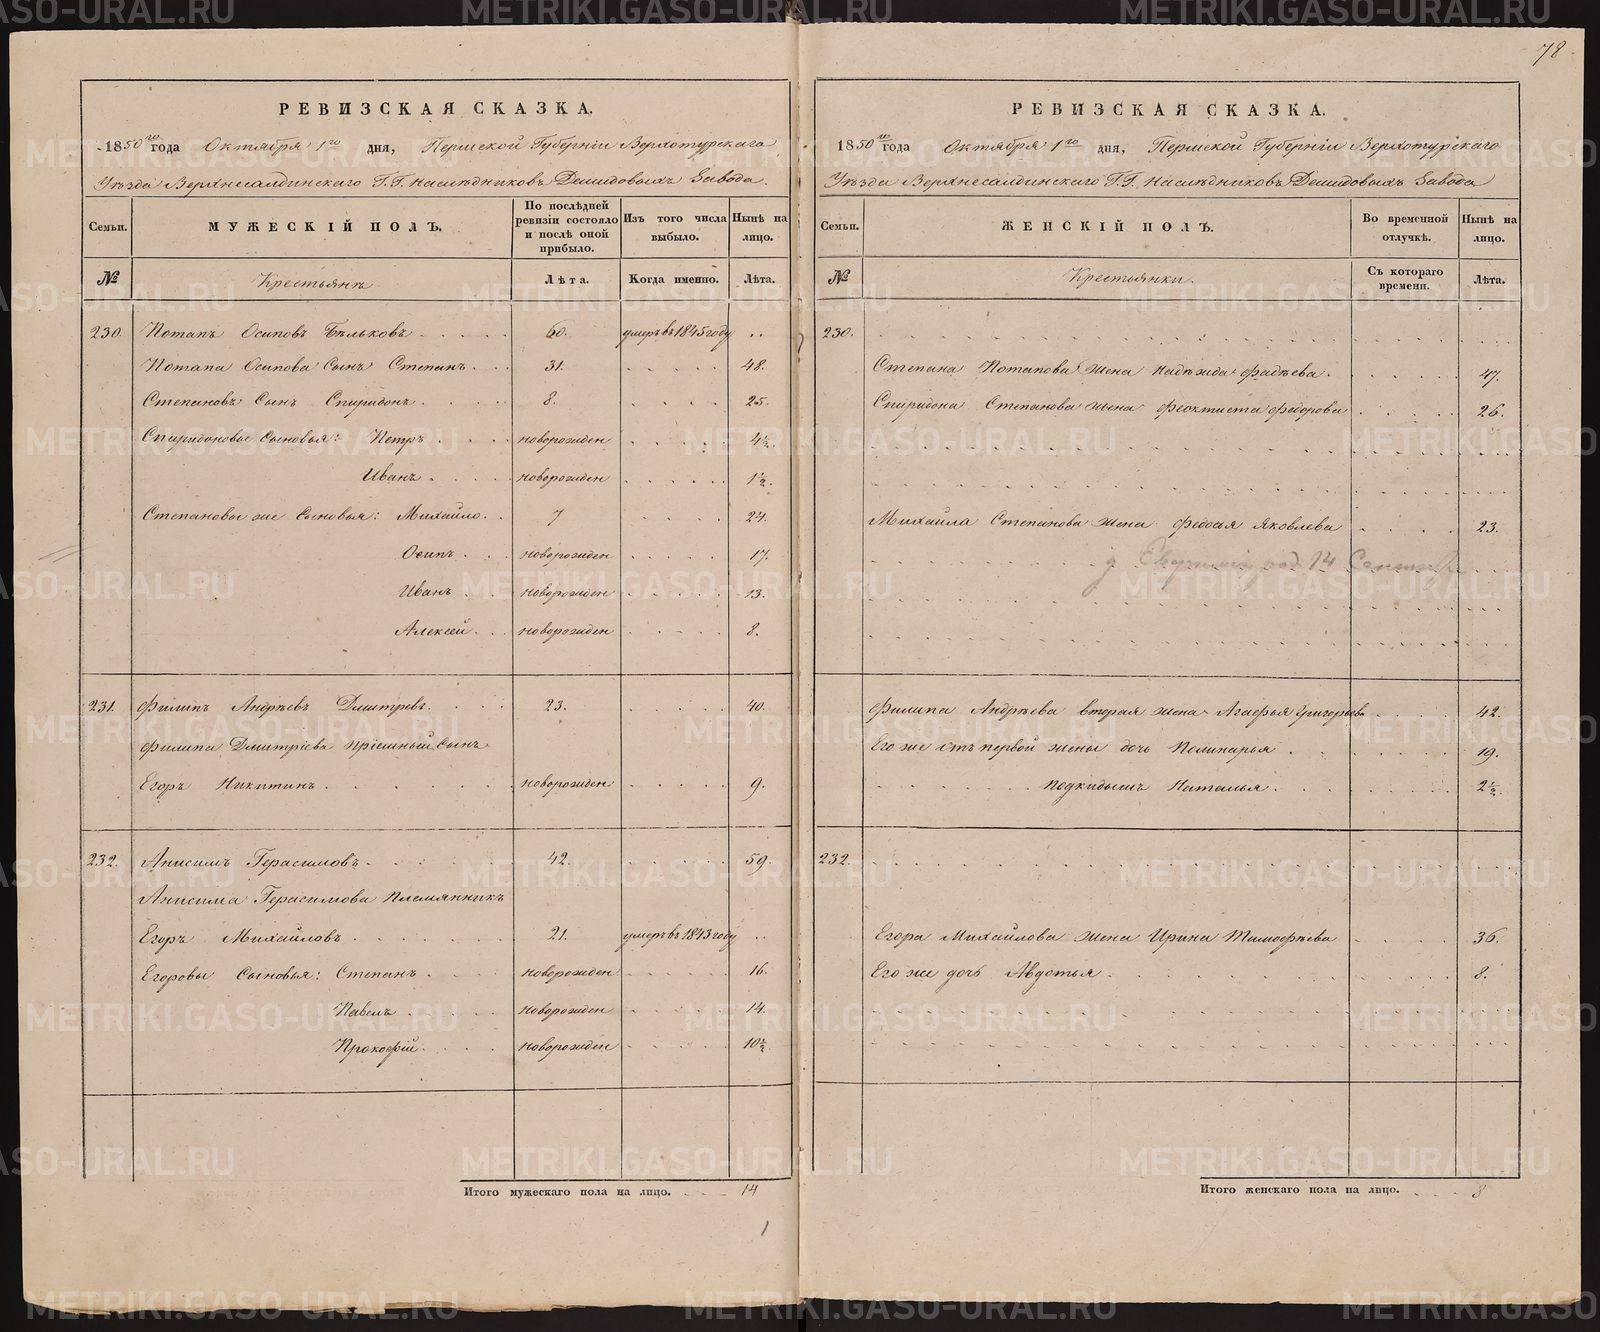 78
РЕВИЗСКАЯ СКАЗКА.
1850го года Октября 1го дня, Пермской Губерніи Верхотурскаго
Уѣзда Верхнесалдинскаго Г.Г. Наслѣдниковъ Демидовыхъ Завода.
Семьи. МУЖЕСКІЙ ПОЛЪ. По послѣдней ревизіи состояло и послѣ оной прибыло. Изъ того числа выбыло. Нынѣ на лицо.
№ Крестьянъ Лѣта. Когда именно. Лѣта.
230. Потапъ Осиповъ Бѣльковъ 60. умеръ въ 1845 году
Потапа Осипова Сынъ Степанъ 31. 48.
Степановъ Сынъ Спиридонъ 8. 25.
Спиридоновы Сыновья: Петръ новорожден 4½
Иванъ новорожден 1½.
Степановы же Сыновья: Михайло 7 24.
Осипъ новорожден 17.
Иванъ новорожден 13.
Алексѣй новорожден 8.
231. Филипъ Андрѣевъ Дмитревъ 23. 40.
Филипа Дмитріева пріемный Сынъ
Егоръ Никитинъ новорожден 9.
232. Анисимъ Герасимовъ 42. 59.
Анисима Герасимова Племянникъ
Егоръ Михайловъ 21. умеръ въ 1843 году
Егоровы Сыновья: Степанъ новорожден 16.
Павелъ новорожден 14.
Прокофій новорожден 10½
Итого мужескаго пола на лицо. 14
1
РЕВИЗСКАЯ СКАЗКА.
1850го года Октября 1го дня, Пермской Губерніи Верхотурскаго
Уѣзда Верхнесалдинскаго Г.Г. Наслѣдниковъ Демидовыхъ Завода
Семьи. ЖЕНСКІЙ ПОЛЪ. Во временной отлучкѣ. Нынѣ на лицо.
№ Крестьянки. Съ котораго времени. Лѣта.
230.
Степана Потапова жена Надежда Фадѣева. 47.
Спиридона Степанова жена Феоктиста Федорова 26.
Михайла Степанова жена Федосья Яковлева 23.
род. 14
Филипа Андрѣева вторая жена Агафья Григорьева 42.
Его же отъ первой жены дочь Полинарья 19.
подкидышъ Наталья. 2½.
232.
Егора Михайлова жена Ирина Тимофѣева 36.
Его же дочь Авдотья 8.
Итого женскаго пола на лицо. 8
METRIKI.GASO-URAL.RU